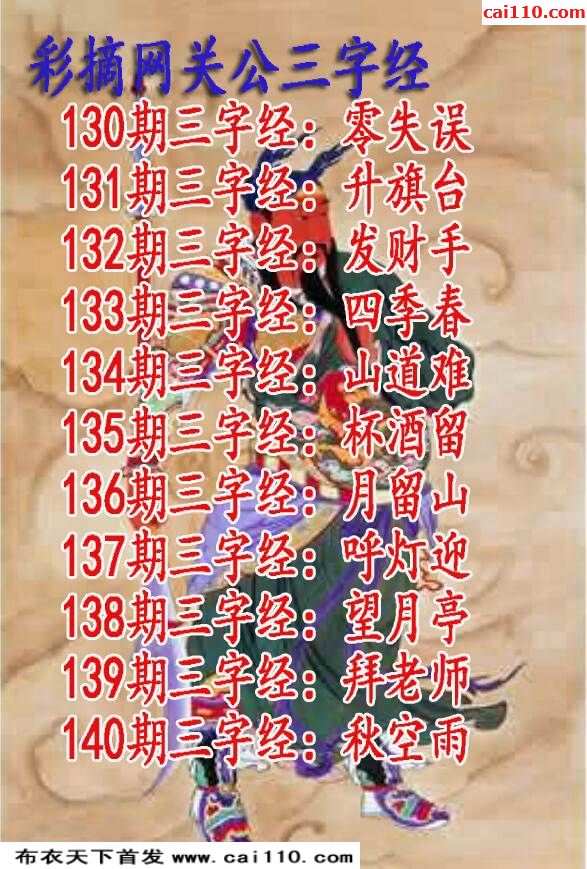 cai110.com
彩摘网关公三字经
130期三字经：零失误
131期三字经：升旗台
132期三字经：发财手
133期三字经：四季春
134期三字经：山道难
135期三字经：杯酒留
136期三字经：月留山
137期三字经：呼灯迎
138期三字经：望月亭
139期三字经：拜老师
140期三字经：秋空雨
布衣天下首发 www.cai110.com